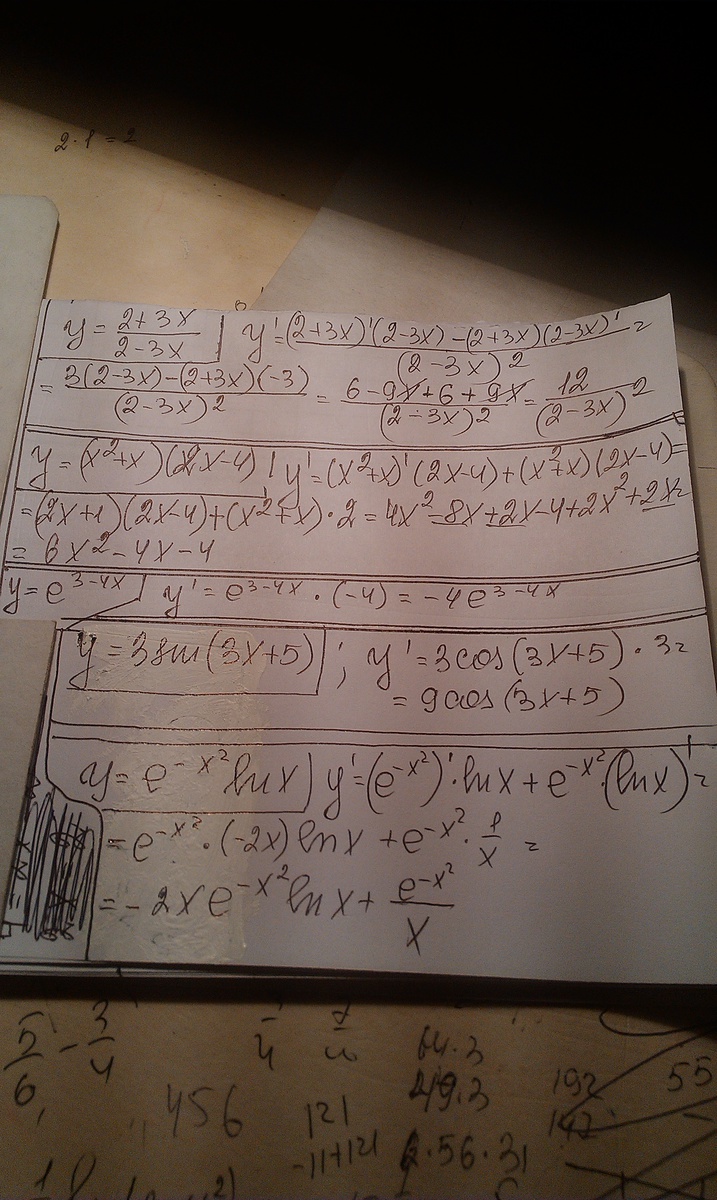 2·1=2
y = (2+3x)/(2-3x) | y' = ((2+3x)'(2-3x)-(2+3x)(2-3x)')/(2-3x)² =
= (3(2-3x)-(2+3x)(-3))/(2-3x)² = (6-9x+6+9x)/(2-3x)² = 12/(2-3x)²
y=(x²+x)(2x-4) | y'=(x²+x)'(2x-4)+(x²+x)(2x-4)=
=(2x+1)(2x-4)+(x²+x)·2=4x²-8x+2x-4+2x²+2x=
= 6x²-4x-4
y=e^(3-4x) | y'=e^(3-4x)·(-4)=-4e^(3-4x)
y=3sin(3x+5) ; y'=3cos(3x+5)·3=
= 9cos(3x+5)
y=e^(-x²)lnx | y'=(e^(-x²))'·lnx+e^(-x²)·(lnx)'=
=e^(-x²)·(-2x)lnx+e^(-x²)·1/x=
=-2xe^(-x²)lnx+e^(-x²)/x
5/6-3/4
64·3
49·3 192 55
456 121 147
-11+121 2·56·31